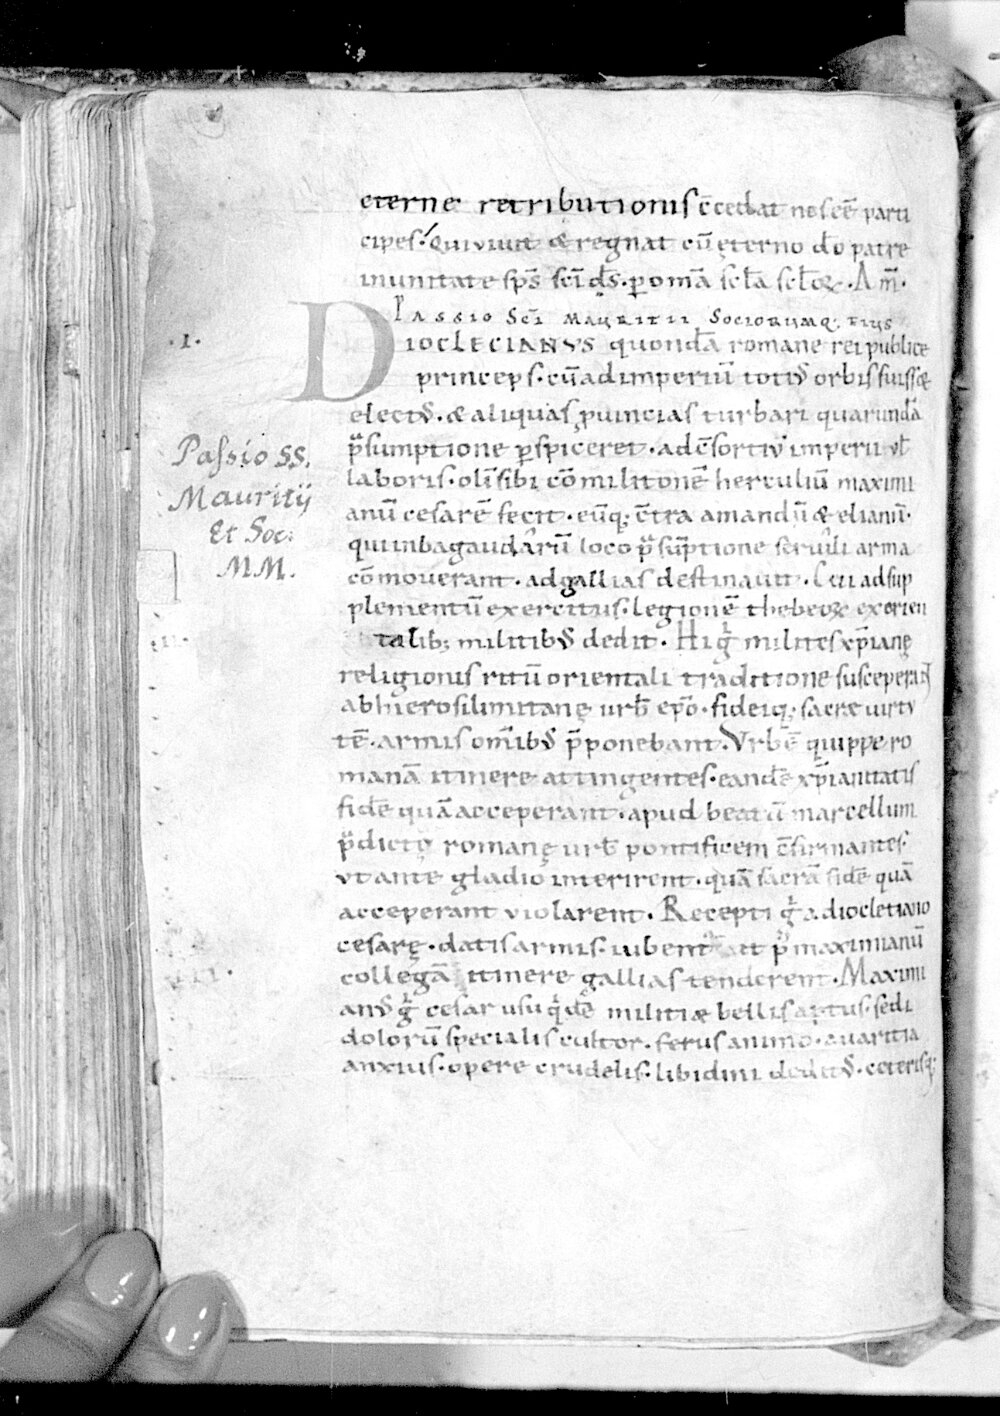 eterne retributionis c̄cedat nos eē parti
cipes. Qui viuit & regnat cū ęterno dō patre
inunitate sp̄s sc̄i d̄s. p omā scl̄a scl̄oꝝ. Am̄.
Passio Sc̄i Mauritii Sociorumq; eius
.I.
DIOCLECIANVS quondā romane rei publice
princeps. cū ad imperiū totiꝰ orbis fuiss&
electꝰ. & aliquas ꝓuincias turbari quarundā
p̄sumptione pspiceret. ad c̄sortiū imperii ul̄
laboris. olī sibi cōmilitonē herculiū maximi
anū cesarē fecit. eūq; c̄tra amandū & elianū.
qui inbagaudarū loco p̄sūptione seruili arma
cōmouerant. ad gallias destinauit. Cui ad sup
plementū exercitus. legionē thebeoꝝ ex orien
talib; militibꝰ dedit. Hi gͥ milites xp̄iane
religionis ritū orientali traditione susceperāt
ab hierosilimitanę urb̄ ep̄o. fideiq; sacrę uirtu
tē. armis om̄ibꝰ p̄ponebant. Vrbē quippe ro
manā itinere attingentes. eandē xp̄ianitatis
fidē quā acceperant. apud beatū marcellum
p̄dictę romanę urb̄ pontificem c̄firmantes.
ut ante gladio interirent. quā sacrā fidē quā
acceperant violarent. Recepti gͥ a diocletiano
cesarę. datis armis. iubent ut p̄ maximianū
collegā itinere gallias tenderent. Maximi
anꝰ gͥ cesar usu qͥdē militiæ bellis aptus. sed i
dolorū specialis cultor. ferus animo. auaritia
anxius. opere crudelis. libidini deditꝰ. ceterisq;
Passio SS.
Mauritij
Et Soc:
MM.
.II.
.III.